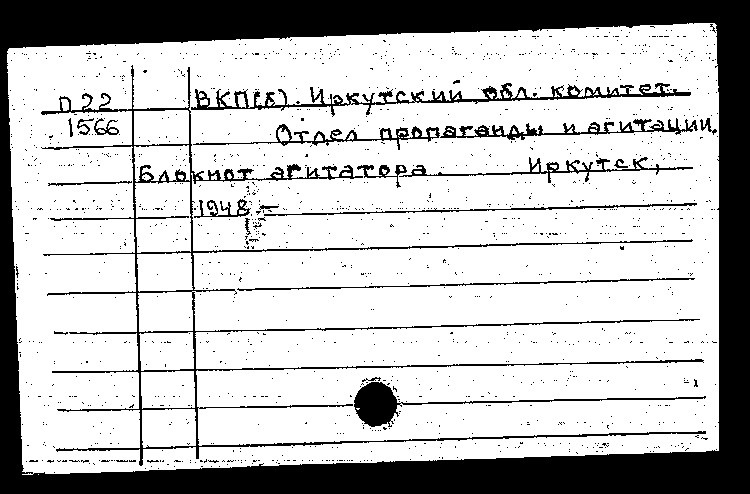 П22 ВКП(б). Иркутский обл. комитет.
1566 Отдел пропаганды и агитации.
Блокнот агитатора. Иркутск,
1948 –